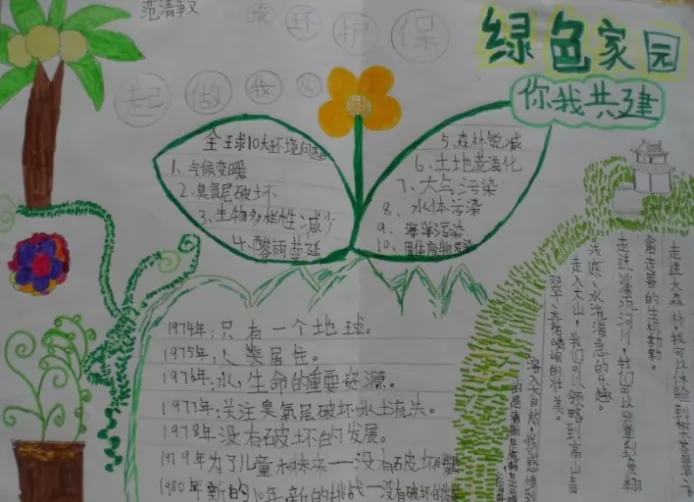 范清敏
保护环境
从我做起
绿色家园
你我共建
全球10大环境问题
1、气候变暖
2、臭氧层破坏
3、生物多样性减少
4、酸雨蔓延
5、森林锐减
6、土地荒漠化
7、大气污染
8、水体污染
9、海洋污染
10、
1974年:只有一个地球。
1975年:人类居住。
1976年:水:生命的重要资源。
1977年:关注臭氧层破坏水土流失。
1978年:没有破坏的发展。
1979年为了儿童和未来——没有破坏的
1980年新的10年,新的挑战——没有破坏的
走进大森林,我可以体验到林
禽走兽的生机勃勃。
走进沙漠流河川,我们可以
浅底、水流湍急的乐趣。
走入大山,我们可以领略到高山青
翠、奇峰峻峭的壮美。
深入自然,我